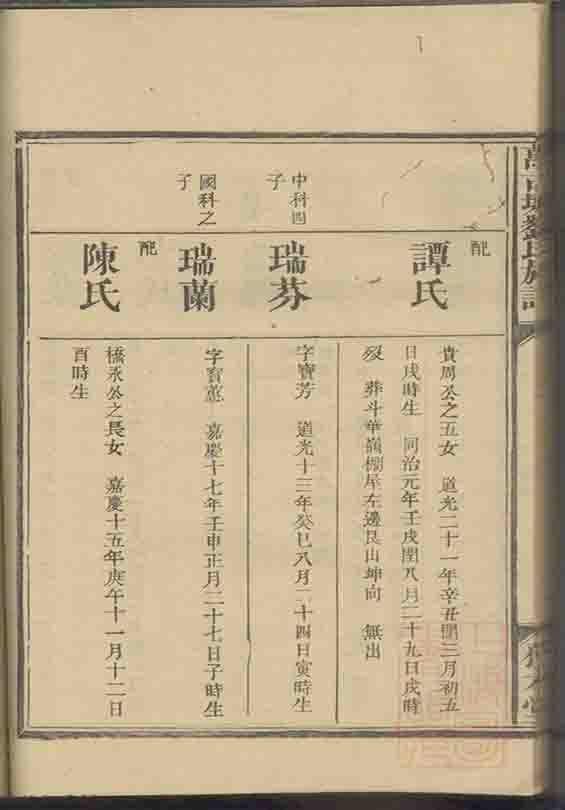 配
譚氏
貴周公之五女　道光二十一年辛丑閏三月初五
日戌時生　同治元年壬戌閏八月二十九日戌時
歿　葬斗華嶺棚屋左邊艮山坤向　無出
中科四
子
瑞芬
字寶芳　道光十三年癸巳八月二十四日寅時生
國科之
子
瑞蘭
字寶蕙　嘉慶十七年壬申正月二十七日子時生
配
陳氏
橋永公之長女　嘉慶十五年庚午十一月十二日
酉時生
劉氏族譜